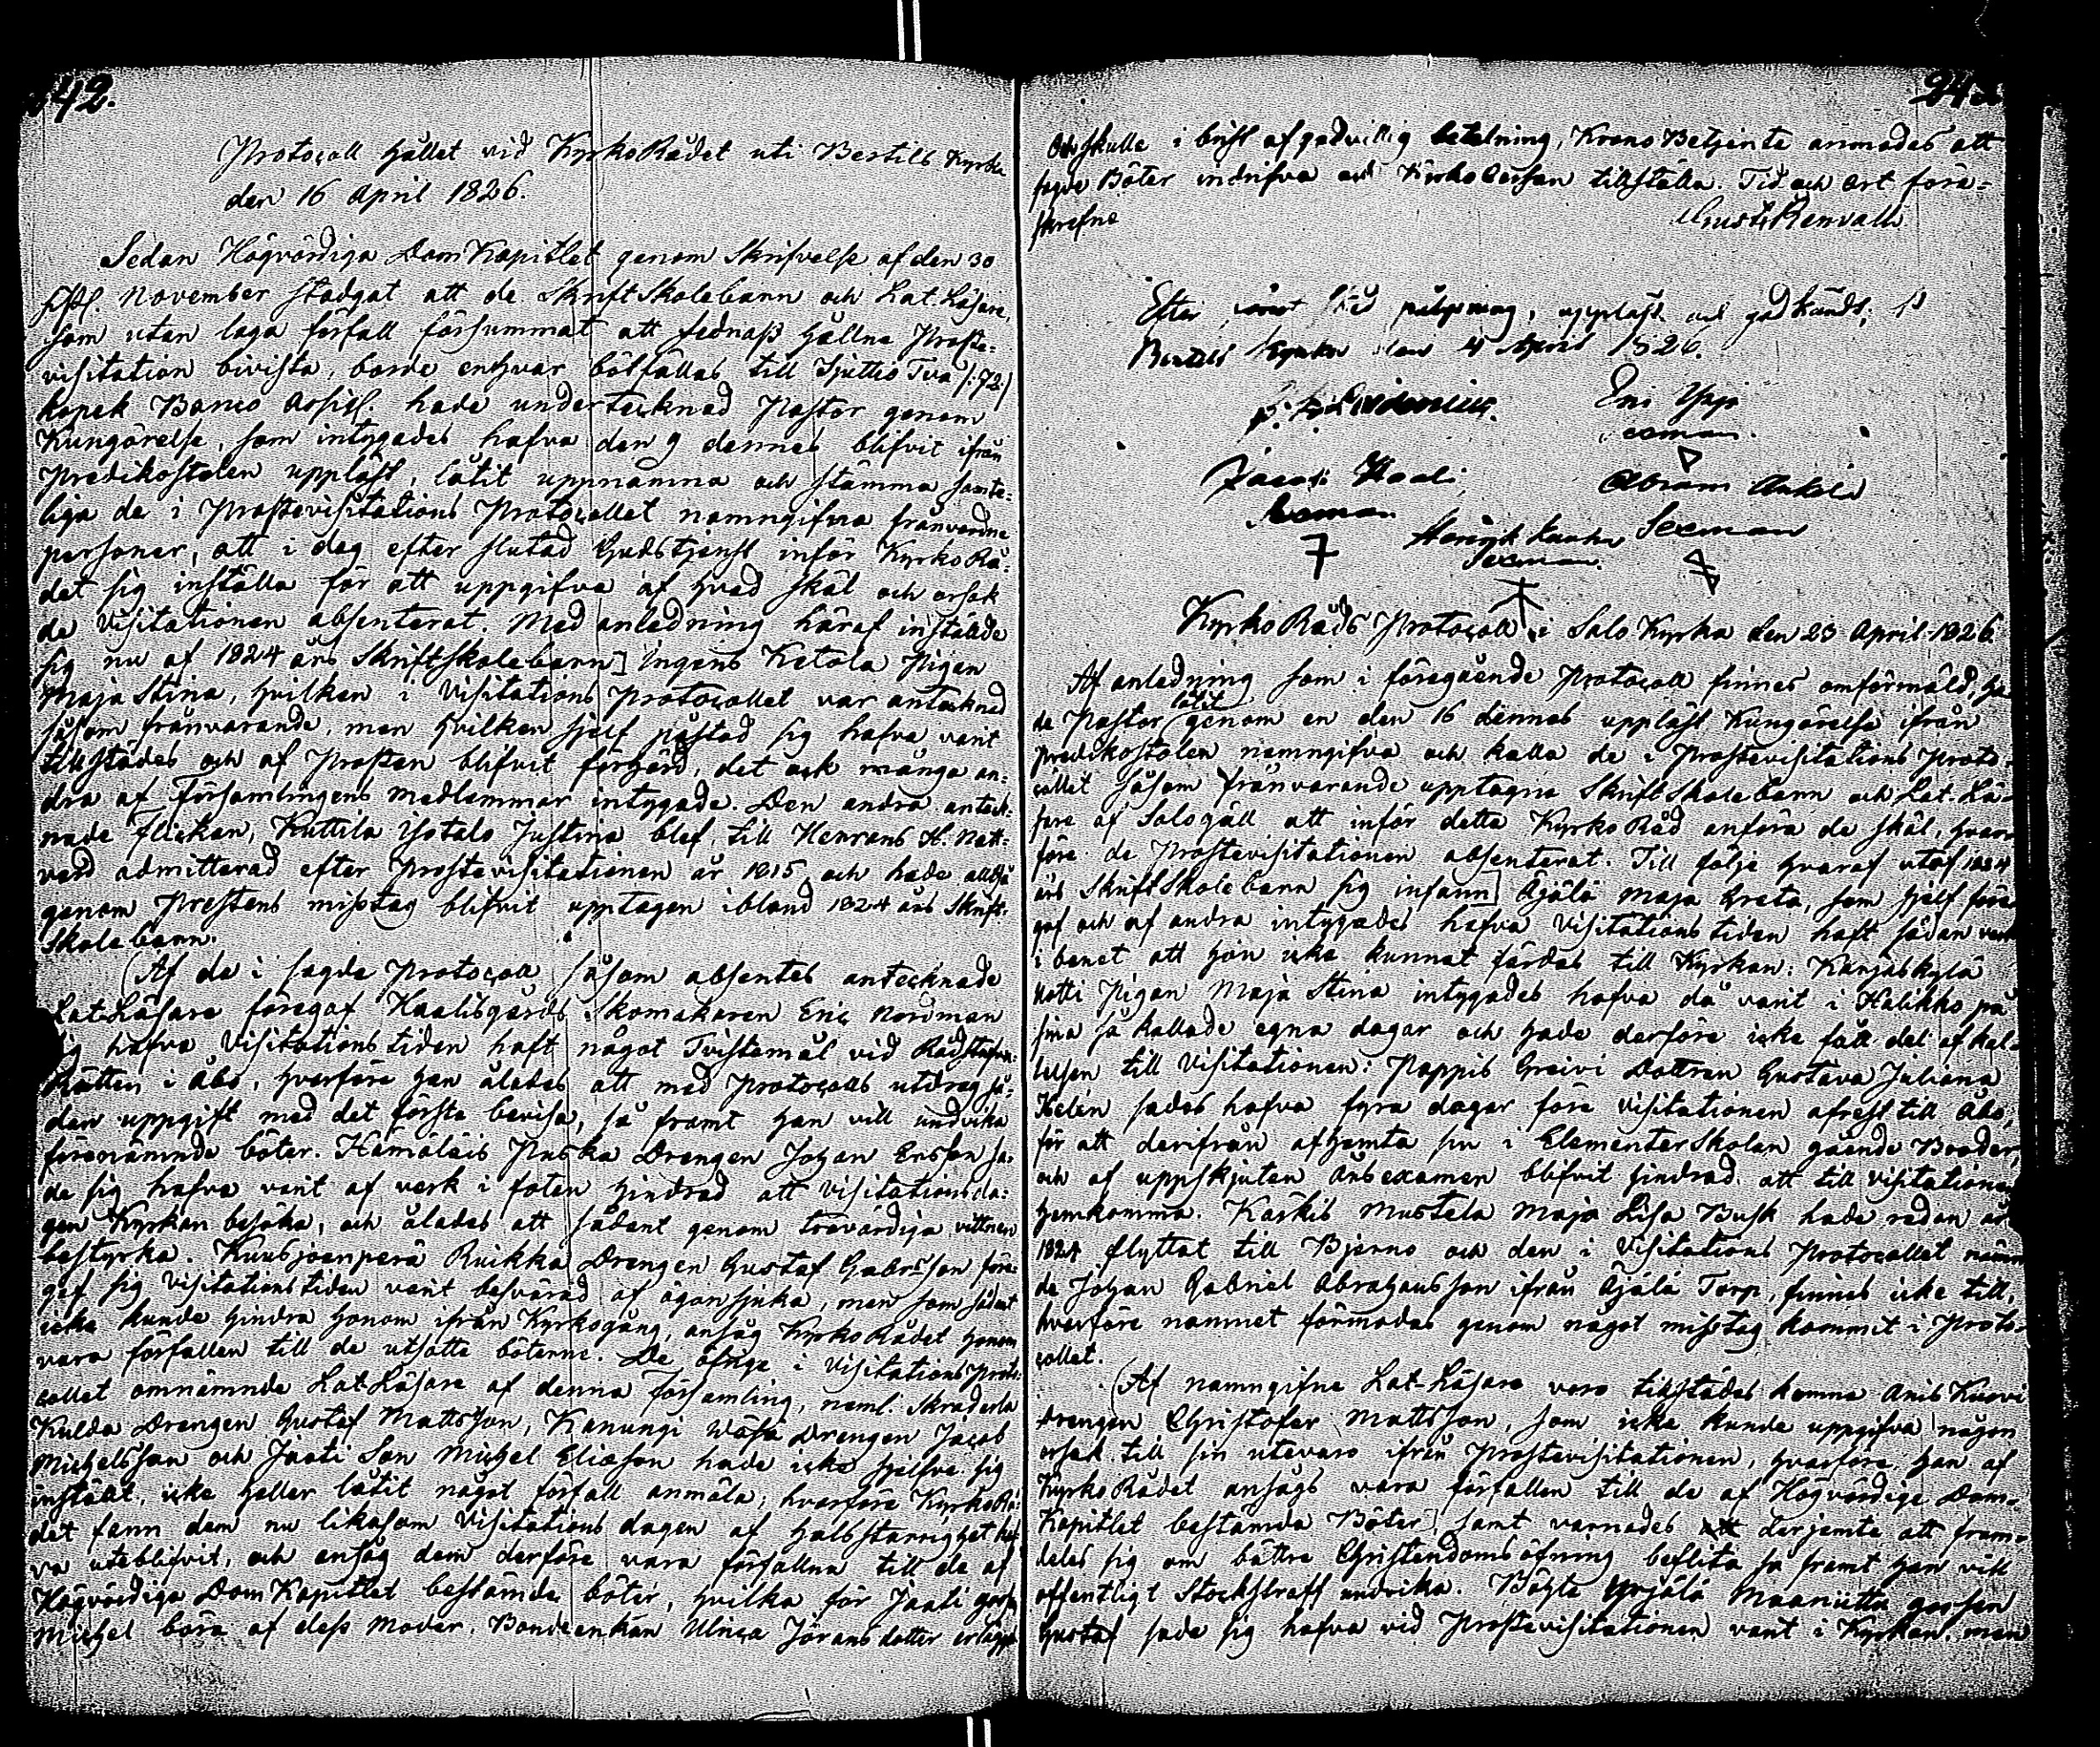 242.
Protocoll hållet vid KyrkoRådet uti Bertils Kyrka
den 16 April 1826.
Sedan Högvördiga DomKapitlet genom Skrifvelse af den 30
November stadgat att de SkriftSkolebarn och Lat-Läsare,
som utan laga förfall försummat att sednast hållne Proste-
visitation bivista, borde enhvar bötfällas till Sjuttio Två /:72:/
kopek Banco Assig. hade undertecknad Pastor genom
Kungörelse, som intygades hafva den 9 dennes blifvit ifrån
Predikostolen uppläst, låtit uppnämna och stämma samte-
liga de i Prostevisitations Protocollet namngifna frånvarande
personer, att i dag efter slutad Gudstjenst inför KyrkoRå-
det sig inställa för att uppgifva af hvad skäl och orsak
de Visitationen absenterat. Med anledning häraf inställde
sig nu af 1824 års Skriftskolebarn] Ingens Ketola Pigan
Maja Stina, hvilken i Visitations Protocollet var antecknad
såsom frånvarande, men hvilken sjelf påstod sig hafva varit
tillstädes och af Prosten blifvit förhörd, det ock många an-
dra af Församlingens medlemmar intygade. Den andra anteck-
nade flickan, Kuttila Isotalo Justina blef till Herrans H. Natt-
vard admitterad efter Prostevisitationen år 1815, och hade alltså
genom Prestens misstag blifvit upptagen ibland 1824 års Skrift-
Skolebarn.
(Af de i sagde Protocoll såsom absentes antecknade
Lat-Läsare föregaf Kaalisgårds Skomakaren Eric Nordman
sig hafva Visitationstiden haft något Tvistemål vid Rådstufvu-
Rätten i Åbo, hvarföre han ålades att med Protocolls utdrag så-
dan uppgift med det första bevisa, så framt han vill undvika
förenämnde böter. Hämäläis Puska Drengen Johan Ersson sa-
de sig hafva varit af verk i foten hindrad att Visitationsda-
gen Kyrkan besöka, och ålades att sådant genom trovärdiga vittnen
bestyrka. Kuusjoenperä Ruikka Drengen Gustaf Gabr:sson före-
gaf sig Visitationstiden varit besvärad af ögonsjuka, men som sådant
icke kunde hindra honom ifrån Kyrkogång, ansåg KyrkoRådet honom
vara förfallen till de utsatte böterne. De öfrige i Visitations Proto-
collet omnämnde Lat-Läsare af denna församling, neml. Skräddarla
Kulda Drengen Gustaf Mattsson, Kanungi Wäfä Drengen Jacob
Michelsson och Jaati Son Michel Eliasson hade icke sjelfve sig
inställt, icke heller låtit något förfall anmäla, hvarföre KyrkoRå-
det fann dem nu likasom Visitations dagen af halsstarrighet haf-
va uteblifvit, och ansåg dem derföre vara förfallna till de af
Högvördiga DomKapitlet bestämda böter, hvilka för Jaati gossen
Michel böra af dess Moder, Bondeenkan Ulrica Jörans dotter erläggas
243.
Och skulle i brist af godvillig betalning, Krono Betjente anmodas att
sagde Böter indrifva och Kyrko Cassan tillställa. Tid och ort före-
skrefne
Gust: Renvall
Efter, uppläst och godkändt;
Bertils Kyrka den April 1826.
Jacob Kaali
Abram Ankola
Henrik Sexman
Sexman
KyrkoRåds Protocoll i Salo Kyrka den 23 April 1826
Af anledning som i föregående Protocoll finnes omförmäld, ha-
de Pastor låtit genom en den 16 dennes uppläst Kungörelse ifrån
predikostolen namngifva och kalla de i Prostevisitations Proto-
collet såsom frånvarande upptagne SkriftSkolebarn och Lat-Lä-
sare af Salo gäll att inför detta KyrkoRåd anföra de skäl, hvar-
före de Prostevisitationen absenterat. Till följe hvaraf utaf 1824
års SkriftSkolebarn sig infann] Äjälä Maja Greta, som sjelf före-
gaf och af andra intygades hafva Visitations tiden haft sådan verk
i benet att hon icke kunnat färdas till Kyrkan: Kanjaskylä
Kotti Pigan Maja Stina intygades hafva då varit i Halikko på
sina så kallade egna dagar och hade derföre icke fått del af kal-
lelsen till Visitationen: Pappis Greivi Dottren Gustava Juliana
Helén sades hafva fyra dagar före Visitationen afrest till Åbo,
för att derifrån afhemta sin i ElementarSkolan gående Broder,
och af uppskjuten årsexamen blifvit hindrad att till visitationen
hemkomma. Kärkis Mustela Maja Lisa Busk hade redan år
1824 flyttat till Bjerno och den i Visitations Protocollet nämn-
de Johan Gabriel Abrahamsson ifrån Äjälä Torp, finnes icke till,
hvarföre namnet förmodas genom något misstag kommit i Proto-
collet.
(Af namngifne Lat-Läsare voro tillstädes komne Anis Kuovi
Drengen Christofer Mattsson, som icke kunde uppgifva någon
orsak till sin utevaro ifrån Prostevisitationen, hvarföre han af
KyrkoRådet ansågs vara förfallen till de af Högvördige Dom-
Kapitlet bestämda Böter], samt varnades derjemte att fram-
deles sig om bättre Christendomsöfning beflita så framt han vill
offentligt Stockstraff undvika. Böhle Yrjälä Maanittu gossen
Gustaf sade sig hafva vid Prostevisitationen varit i Kyrkan, men